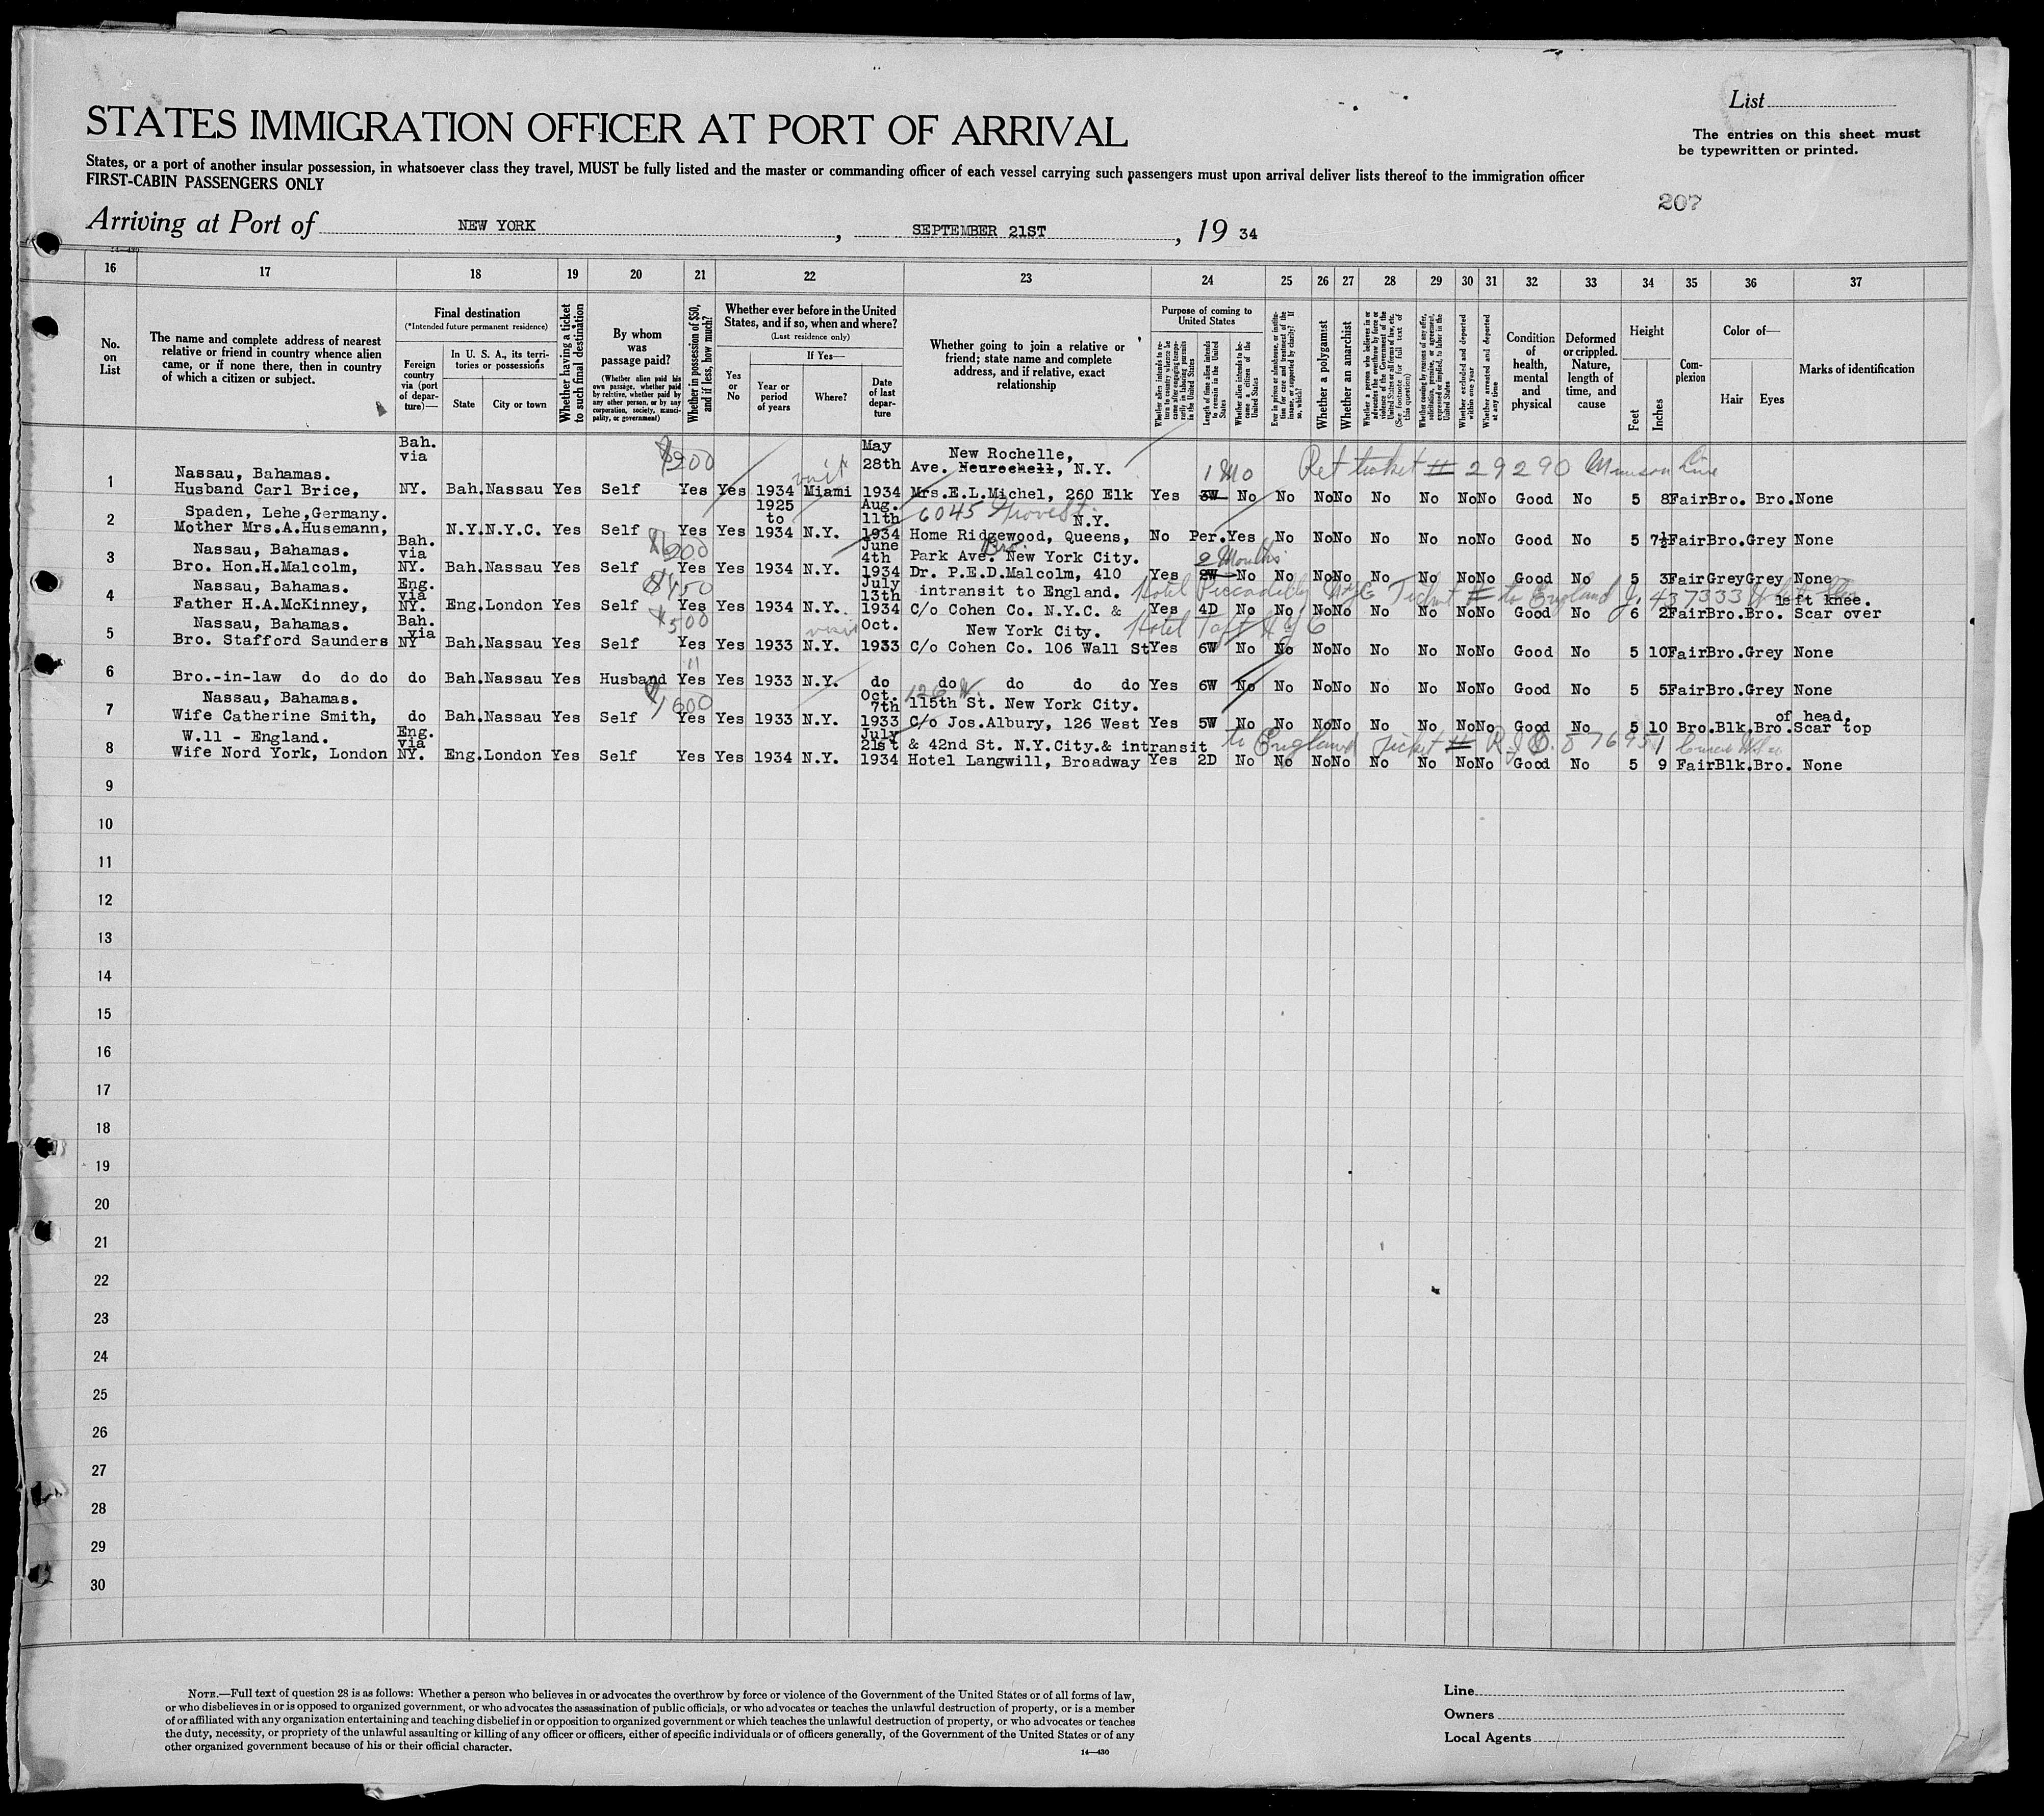 List
STATES IMMIGRATION OFFICER AT PORT OF ARRIVAL
The entries on this sheet must
be typewritten or printed.
States, or a port of another insular possession, in whatsoever class they travel, MUST be fully listed and the master or commanding officer of each vessel carrying such passengers must upon arrival deliver lists thereof to the immigration officer
FIRST-CABIN PASSENGERS ONLY
207
Arriving at Port of NEW YORK, SEPTEMBER 21ST, 19 34
16 17 18 19 20 21 22 23 24 25 26 27 28 29 30 31 32 33 34 35 36 37
No.
on
List
The name and complete address of nearest
relative or friend in country whence alien
came, or if none there, then in country
of which a citizen or subject.
Final destination
(*Intended future permanent residence)
Foreign
country
via (port
of depar-
ture)—
In U. S. A., its terri-
tories or possessions
State
City or town
Whether having a ticket
to such final destination
By whom
was
passage paid?
(Whether alien paid his
own passage, whether paid
by relative, whether paid by
any other person, or by any
corporation, society, munici-
pality, or government)
Whether in possession of $50,
and if less, how much?
Whether ever before in the United
States, and if so, when and where?
(Last residence only)
Yes
or
No
If Yes—
Year or
period
of years
Where?
Date
of last
depar-
ture
Whether going to join a relative or
friend; state name and complete
address, and if relative, exact
relationship
Purpose of coming to
United States
Whether alien intends to re-
turn to country whence he
came after engaging tempo-
rarily in laboring pursuits
in the United States
Length of time alien intends
to remain in the United
States
Whether alien intends to be-
come a citizen of the
United States
Ever in prison or almshouse, or institu-
tion for care and treatment of the
insane, or supported by charity? If
so, which?
Whether a polygamist
Whether an anarchist
Whether a person who believes in or
advocates the overthrow by force or
violence of the Government of the
United States or all forms of law, etc.
(See footnote for full text of
this question)
Whether coming by reasons of any offer,
solicitation, promise, or agreement,
expressed or implied, to labor in the
United States
Whether excluded and deported
within one year
Whether arrested and deported
at any time
Condition
of
health,
mental
and
physical
Deformed
or crippled.
Nature,
length of
time, and
cause
Height
Feet
Inches
Com-
plexion
Color of—
Hair
Eyes
Marks of identification
Bah. May
via $200 visit 28th New Rochelle,
Nassau, Bahamas. Ave. Neurochell, N.Y. 1 Mo Ret ticket # 29290 Munson Line
1 Husband Carl Brice, NY. Bah. Nassau Yes Self Yes Yes 1934 Miami 1934 Mrs.E.L.Michel, 260 Elk Yes 3W No No No No No No No No Good No 5 8 Fair Bro. Bro. None
1925 Aug.
Spaden, Lehe,Germany. to 11th 6045 Grove St. N.Y.
2 Mother Mrs.A.Husemann, N.Y. N.Y.C. Yes Self Yes Yes 1934 N.Y. 1934 Home Ridgewood, Queens, No Per. Yes No No No No No no No Good No 5 7½ Fair Bro. Grey None
Bah. June
Nassau, Bahamas. via $200 4th Bro. Park Ave. New York City. 2 Months
3 Bro. Hon.H.Malcolm, NY. Bah. Nassau Yes Self Yes Yes 1934 N.Y. 1934 Dr. P.E.D.Malcolm, 410 Yes 2W No No No No No No No No Good No 5 3 Fair Grey Grey None
Eng. July
Nassau, Bahamas. via $450 13th intransit to England. Hotel Piccadilly NYC Ticket # to England 437333 left knee.
4 Father H.A.McKinney, NY. Eng. London Yes Self Yes Yes 1934 N.Y. 1934 C/o Cohen Co. N.Y.C. & Yes 4D No No No No No No No No Good No 6 2 Fair Bro. Bro. Scar over
Nassau, Bahamas. Bah. $500 Oct.
via visit New York City. Hotel Taft NYC
5 Bro. Stafford Saunders NY Bah. Nassau Yes Self Yes Yes 1933 N.Y. 1933 C/o Cohen Co. 106 Wall St Yes 6W No No No No No No No No Good No 5 10 Fair Bro. Grey None
"
6 Bro.-in-law do do do do Bah. Nassau Yes Husband Yes Yes 1933 N.Y. do do do do do Yes 6W No No No No No No No No Good No 5 5 Fair Bro. Grey None
Nassau, Bahamas. $1600 Oct. 126 W.
7th 115th St. New York City.
7 Wife Catherine Smith, do Bah. Nassau Yes Self Yes Yes 1933 N.Y. 1933 C/o Jos.Albury, 126 West Yes 5W No No No No No No No No Good No 5 10 Bro. Blk. Bro. Scar top
of head.
Eng. July
W.11 - England. via 21st & 42nd St. N.Y.City.& intransit to England Ticket #
8 Wife Nord York, London NY. Eng. London Yes Self Yes Yes 1934 N.Y. 1934 Hotel Langwill, Broadway Yes 2D No No No No No No No No Good No 5 9 Fair Blk. Bro. None
9
10
11
12
13
14
15
16
17
18
19
20
21
22
23
24
25
26
27
28
29
30
NOTE.—Full text of question 28 is as follows: Whether a person who believes in or advocates the overthrow by force or violence of the Government of the United States or of all forms of law,
or who disbelieves in or is opposed to organized government, or who advocates the assassination of public officials, or who advocates or teaches the unlawful destruction of property, or is a member
of or affiliated with any organization entertaining and teaching disbelief in or opposition to organized government or which teaches the unlawful destruction of property, or who advocates or teaches
the duty, necessity, or propriety of the unlawful assaulting or killing of any officer or officers, either of specific individuals or of officers generally, of the Government of the United States or of any
other organized government because of his or their official character.
14—430
Line
Owners
Local Agents